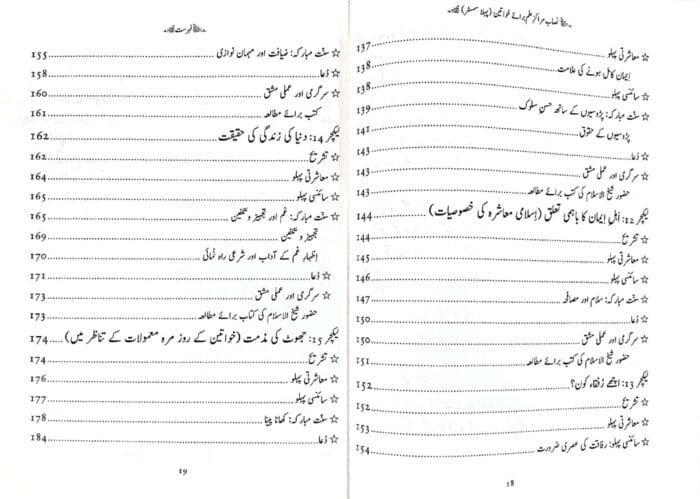 نصاب مراکز علم برائے خواتین (پہلا سمسٹر)
☆ معاشرتی پہلو 137
ایمان کامل ہونے کی علامت 138
☆ سائنسی پہلو 138
☆ سنت مبارکہ: پڑوسیوں کے ساتھ حسن سلوک 139
پڑوسیوں کے حقوق 141
☆ دُعا 143
☆ سرگرمی اور عملی مشق 143
حضور شیخ الاسلام کی کتب برائے مطالعہ 143
لیکچر 12: اَہلِ اِیمان کا باہمی تعلق (اِسلامی معاشرہ کی خصوصیات) 144
☆ تشریح 144
☆ معاشرتی پہلو 145
☆ سائنسی پہلو 146
☆ سنت مبارکہ: سلام اور مصافحہ 147
☆ دُعا 150
☆ سرگرمی اور عملی مشق 150
حضور شیخ الاسلام کی کتب برائے مطالعہ 151
لیکچر 13: اچھے رُفقاء کون؟ 152
☆ تشریح 152
☆ معاشرتی پہلو 153
☆ سائنسی پہلو: رفاقت کی عصری ضرورت 154
18
فہرست
☆ سنت مبارکہ: ضیافت اور مہمان نوازی 155
☆ دُعا 158
☆ سرگرمی اور عملی مشق 160
کتب برائے مطالعہ 161
لیکچر 14: دنیا کی زندگی کی حقیقت 162
☆ تشریح 162
☆ معاشرتی پہلو 164
☆ سائنسی پہلو 165
☆ سنت مبارکہ: غم اور تجہیز و تکفین 165
تجہیز و تکفین 169
اِظہارِ غم کے آداب اور شرعی راہ نمائی 170
☆ دُعا 171
☆ سرگرمی اور عملی مشق 173
حضور شیخ الاسلام کی کتاب برائے مطالعہ 173
لیکچر 15: جھوٹ کی مذمت (خواتین کے روز مرہ معمولات کے تناظر میں) 174
☆ تشریح 174
☆ معاشرتی پہلو 176
☆ سائنسی پہلو 177
☆ سنت مبارکہ: کھانا پینا 178
☆ دُعا 184
19